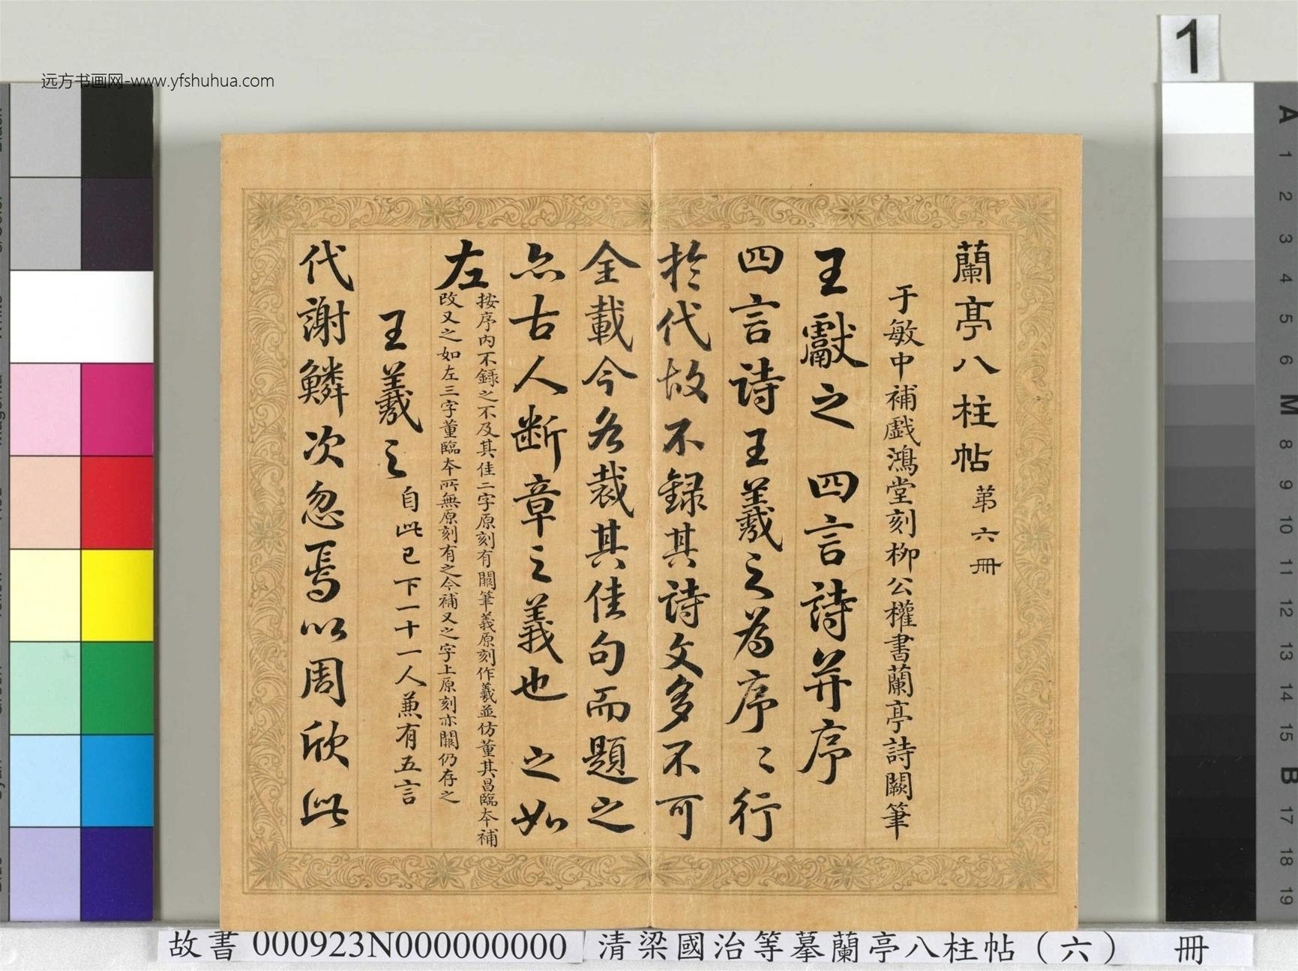 远方书画网-www.yfshuhua.com
1
蘭亭八柱帖 第六冊
于敏中補戲鴻堂刻柳公權書蘭亭詩闕筆
王獻之 四言詩并序
四言詩王羲之為序序行
於代故不録其詩文多不可
全載今各裁其佳句而題之
亦古人断章之義也 之如
左
按序内不錄之不及其佳二字原刻有闕筆義原刻作羲並仿董其昌臨本補
改又之如左三字董臨本所無原刻有之今補又之字上原刻亦闕仍存之
王羲之 自此已下一十一人兼有五言
代謝鱗次忽焉以周欣此
A 1 2 3 4 5 6 M 8 9 10 11 12 13 14 15 B 17 18 19
故書 000923N000000000 清梁國治等摹蘭亭八柱帖（六） 冊